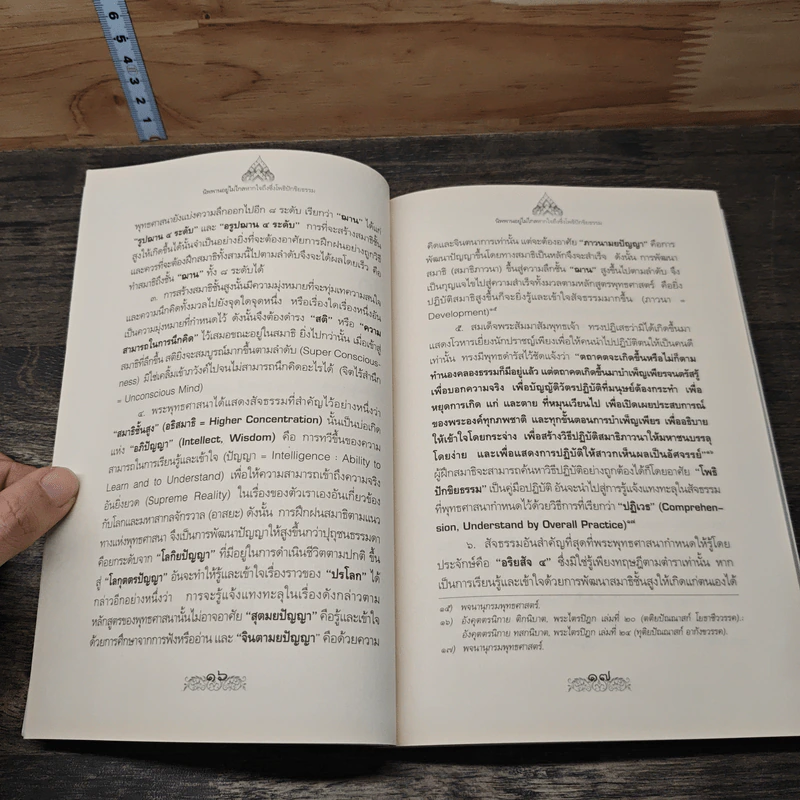 6 5 4 3 2 1
นิพพานอยู่ไม่ไกลหากใจถึงซึ่งโพธิปักขิยธรรม
พุทธศาสนายังแบ่งความลึกออกไปอีก ๘ ระดับ เรียกว่า "ฌาน" ได้แก่
"รูปฌาน ๔ ระดับ" และ "อรูปฌาน ๔ ระดับ" การที่จะสร้างสมาธิขั้น
สูงให้เกิดขึ้นได้นั้นจำเป็นอย่างยิ่งที่จะต้องอาศัยการฝึกฝนอย่างถูกวิธี
และควรที่จะต้องฝึกสมาธิทั้งสามนี้ไปตามลำดับจึงจะได้ผลโดยเร็ว คือ
ทำสมาธิถึงขั้น "ฌาน" ทั้ง ๘ ระดับได้
๓. การสร้างสมาธิขั้นสูงนั้นมีความมุ่งหมายที่จะทุ่มเทความสนใจ
และความนึกคิดทั้งมวลไปยังจุดใดจุดหนึ่ง หรือเรื่องใดเรื่องหนึ่งอัน
เป็นความมุ่งหมายที่กำหนดไว้ ดังนั้นจึงต้องดำรง "สติ" หรือ "ความ
สามารถในการนึกคิด" ไว้เสมอขณะอยู่ในสมาธิ ยิ่งไปกว่านั้น เมื่อเข้าสู่
สมาธิที่ลึกขึ้น สติยิ่งจะสมบูรณ์มากขึ้นตามลำดับ (Super Conscious-
ness) มิใช่เคลิ้มเข้าภวังค์ไปจนไม่สามารถนึกคิดอะไรได้ (จิตไร้สำนึก
= Unconscious Mind)
๔. พระพุทธศาสนาได้แสดงสัจธรรมที่สำคัญไว้อย่างหนึ่งว่า
"สมาธิขั้นสูง" (อธิสมาธิ = Higher Concentration) นั้นเป็นบ่อเกิด
แห่ง "อภิปัญญา" (Intellect, Wisdom) คือ การทวีขึ้นของความ
สามารถในการเรียนรู้และเข้าใจ (ปัญญา = Intelligence : Ability to
Learn and to Understand) เพื่อให้ความสามารถเข้าถึงความจริง
อันยิ่งยวด (Supreme Reality) ในเรื่องของตัวเราเองอันเกี่ยวข้อง
กับโลกและมหาสากลจักรวาล (อาสยะ) ดังนั้น การฝึกฝนสมาธิตามแนว
ทางแห่งพุทธศาสนา จึงเป็นการพัฒนาปัญญาให้สูงขึ้นกว่าปุถุชนธรรมดา
คือยกระดับจาก "โลกิยปัญญา" ที่มีอยู่ในการดำเนินชีวิตตามปกติ ขึ้น
สู่ "โลกุตตรปัญญา" อันจะทำให้รู้และเข้าใจเรื่องราวของ "ปรโลก" ได้
กล่าวอีกอย่างหนึ่งว่า การจะรู้แจ้งแทงทะลุในเรื่องดังกล่าวตาม
หลักสูตรของพุทธศาสนานั้นไม่อาจอาศัย "สุตมยปัญญา" คือรู้และเข้าใจ
ด้วยการศึกษาจากการฟังหรืออ่าน และ "จินตามยปัญญา" คือด้วยความ
๑๖
นิพพานอยู่ไม่ไกลหากใจถึงซึ่งโพธิปักขิยธรรม
คิดและจินตนาการเท่านั้น แต่จะต้องอาศัย "ภาวนามยปัญญา" คือการ
พัฒนาปัญญาขึ้นโดยทางสมาธิเป็นหลักจึงจะสำเร็จ ดังนั้น การพัฒนา
สมาธิ (สมาธิภาวนา) ขึ้นสู่ความลึกชั้น "ฌาน" สูงขึ้นไปตามลำดับ จึง
เป็นกุญแจไขไปสู่ความสำเร็จทั้งมวลตามหลักสูตรพุทธศาสตร์ คือยิ่ง
ปฏิบัติสมาธิสูงขึ้นก็จะยิ่งรู้และเข้าใจสัจธรรมมากขึ้น (ภาวนา =
Development)๑๕
๕. สมเด็จพระสัมมาสัมพุทธเจ้า ทรงปฏิเสธว่ามิได้เกิดขึ้นมา
แสดงโวหารเยี่ยงนักปราชญ์เพียงเพื่อให้คนนำไปปฏิบัติตนให้เป็นคนดี
เท่านั้น ทรงมีพุทธดำรัสไว้ชัดแจ้งว่า "ตถาคตจะเกิดขึ้นหรือไม่ก็ตาม
ทำนองคลองธรรมก็มีอยู่แล้ว แต่ตถาคตเกิดขึ้นมาบำเพ็ญเพียรจนตรัสรู้
เพื่อบอกความจริง เพื่อบัญญัติวัตรปฏิบัติที่มนุษย์ต้องกระทำ เพื่อ
หยุดการเกิด แก่ และตาย ที่หมุนเวียนไป เพื่อเปิดเผยประสบการณ์
ของพระองค์ทุกภพชาติ และทุกขั้นตอนการบำเพ็ญเพียร เพื่ออธิบาย
ให้เข้าใจโดยกระจ่าง เพื่อสร้างวิธีปฏิบัติสมาธิภาวนาให้มหาชนบรรลุ
โดยง่าย และเพื่อแสดงการปฏิบัติให้สาวกเห็นผลเป็นอัศจรรย์"๑๖
ผู้ฝึกสมาธิจะสามารถค้นหาวิธีปฏิบัติอย่างถูกต้องได้ก็โดยอาศัย "โพธิ
ปักขิยธรรม" เป็นคู่มือปฏิบัติ อันจะนำไปสู่การรู้แจ้งแทงทะลุในสัจธรรม
ที่พุทธศาสนากำหนดไว้ด้วยวิธีการที่เรียกว่า "ปฏิเวธ" (Comprehen-
sion, Understand by Overall Practice)๑๗
๖. สัจธรรมอันสำคัญที่สุดที่พระพุทธศาสนากำหนดให้รู้โดย
ประจักษ์คือ "อริยสัจ ๔" ซึ่งมิใช่รู้เพียงทฤษฎีตามตำราเท่านั้น หาก
เป็นการเรียนรู้และเข้าใจด้วยการพัฒนาสมาธิขั้นสูงให้เกิดแก่ตนเองได้
๑๕) พจนานุกรมพุทธศาสตร์.
๑๖) อังคุตตรนิกาย ติกนิบาต, พระไตรปิฎก เล่มที่ ๒๐ (ตติยปัณณาสก์ โยธาชีววรรค).:
อังคุตตรนิกาย ทสกนิบาต, พระไตรปิฎก เล่มที่ ๒๔ (ทุติยปัณณาสก์ อากังขวรรค).
๑๗) พจนานุกรมพุทธศาสตร์.
๑๗